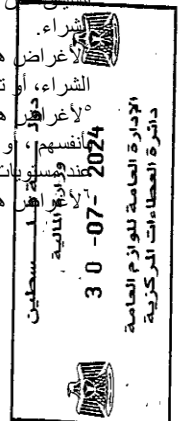 شراء.
لأغراض
الشراء، أو
°لأغراض
بأنفسهم، أو
عند مستويات
لأغراض
دولة فلسطين
وزارة المالية
3 0 -07- 2024
الإدارة العامة للوازم العامة
دائرة العطاءات المركزية